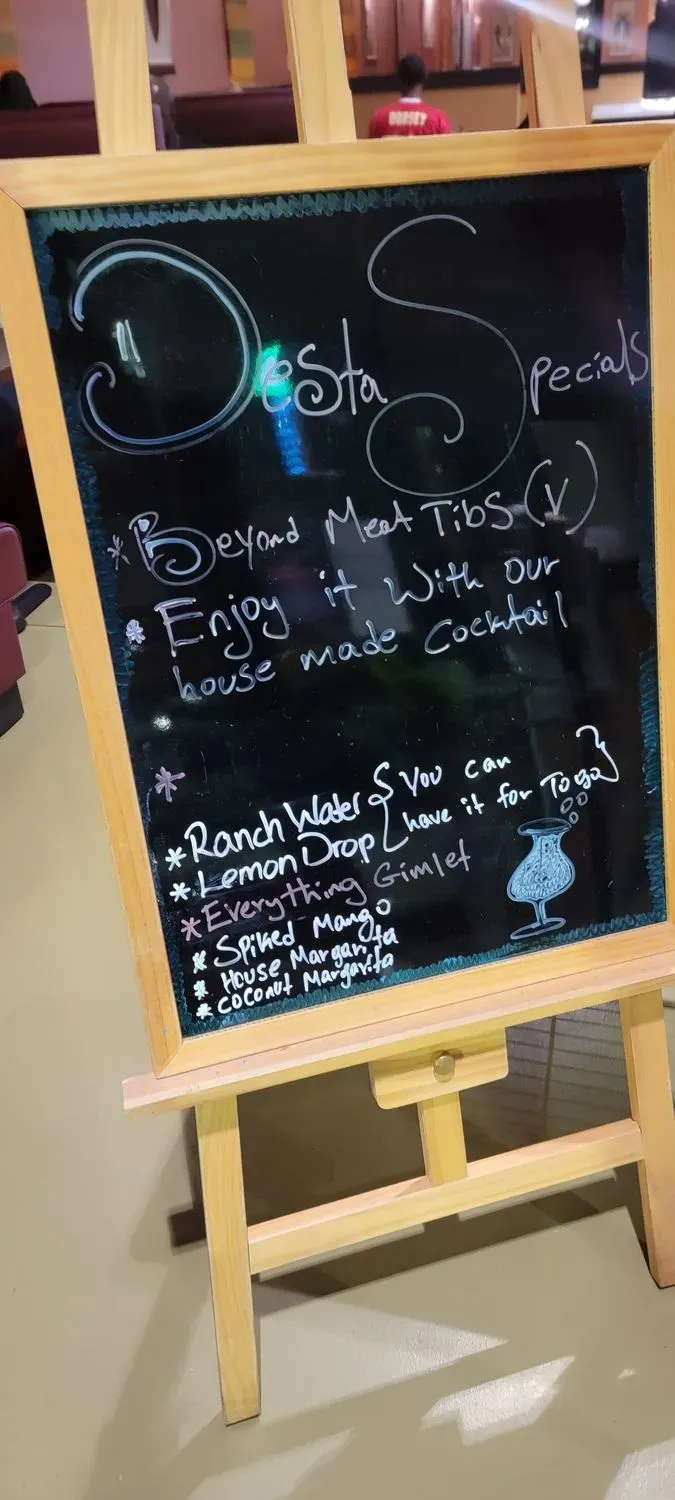 DORSEY
Desta Specials
* Beyond Meat Tibs (V)
* Enjoy it With our
house made Cocktail
*
* Ranch Water { You can
* Lemon Drop { have it for To go }
* Everything Gimlet
* Spiked Mango
* House Margarita
* Coconut Margarita